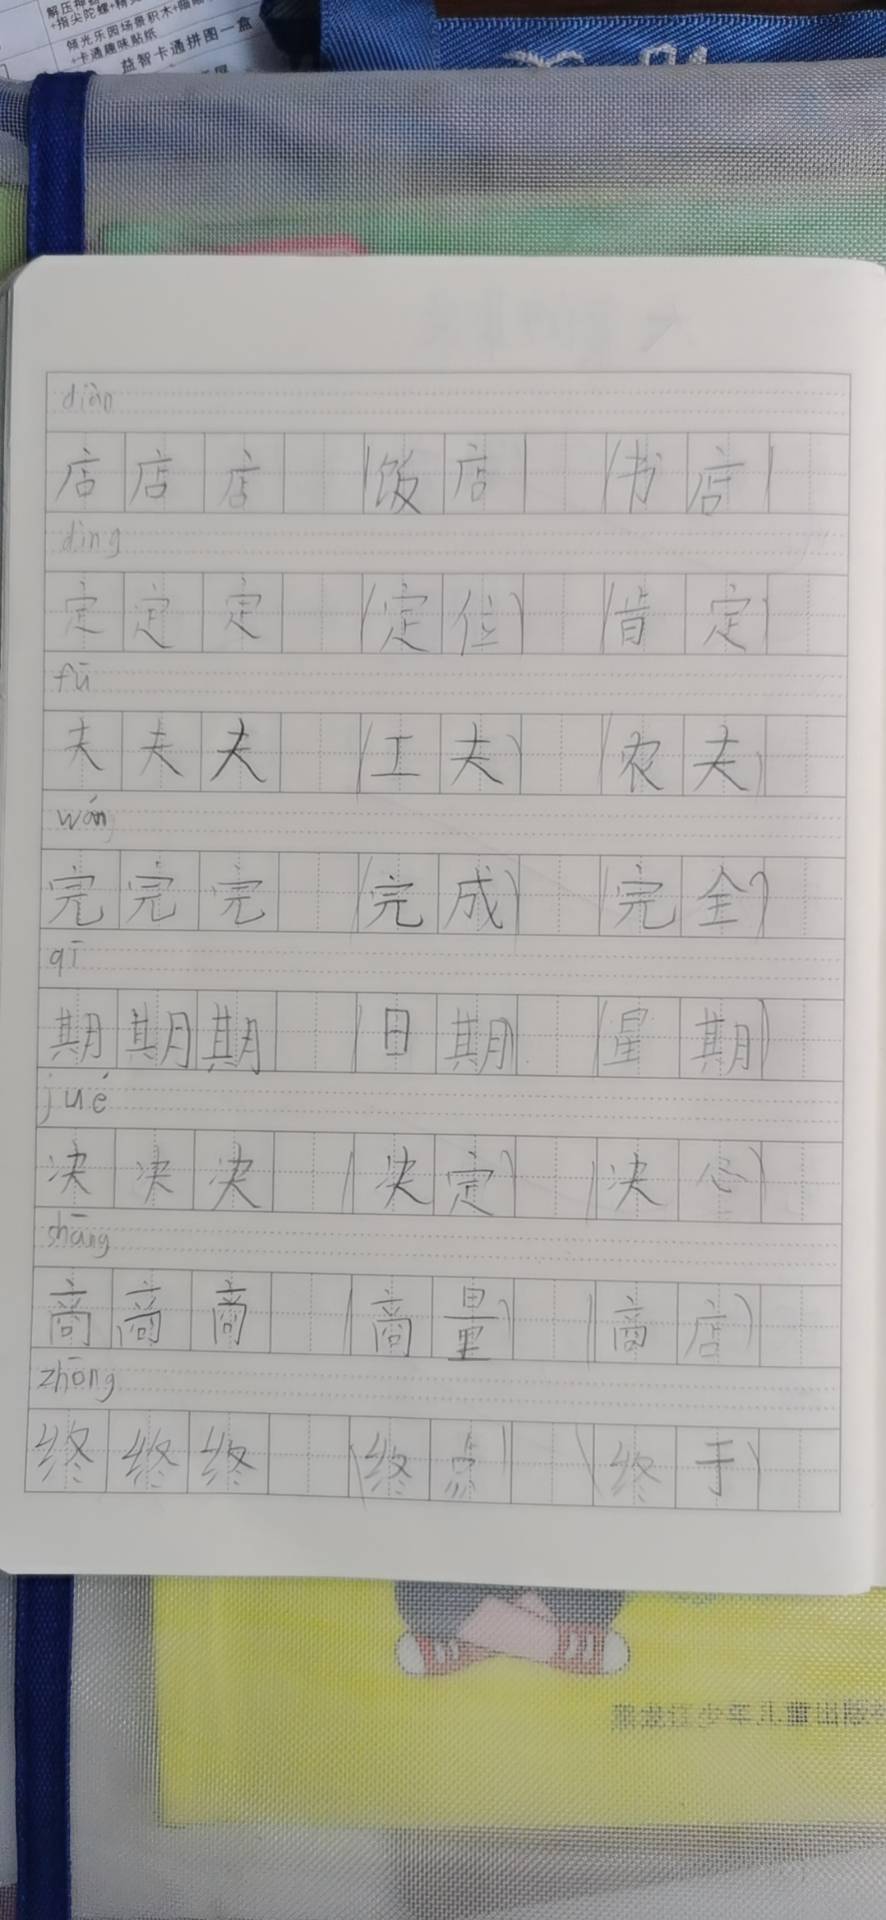 解压神
+指尖陀螺+精
倾光乐园场景积木+
+卡通趣味贴纸
益智卡通拼图一盒
diàn
店店店 (饭店) (书店)
dìng
定定定 (定位) (肯定)
fū
夫夫夫 (工夫) (农夫)
wán
完完完 (完成) (完全)
qī
期期期 (日期) (星期)
jué
决决决 (决定) (决心)
shāng
商商商 (商量) (商店)
zhōng
终终终 (终点) (终于)